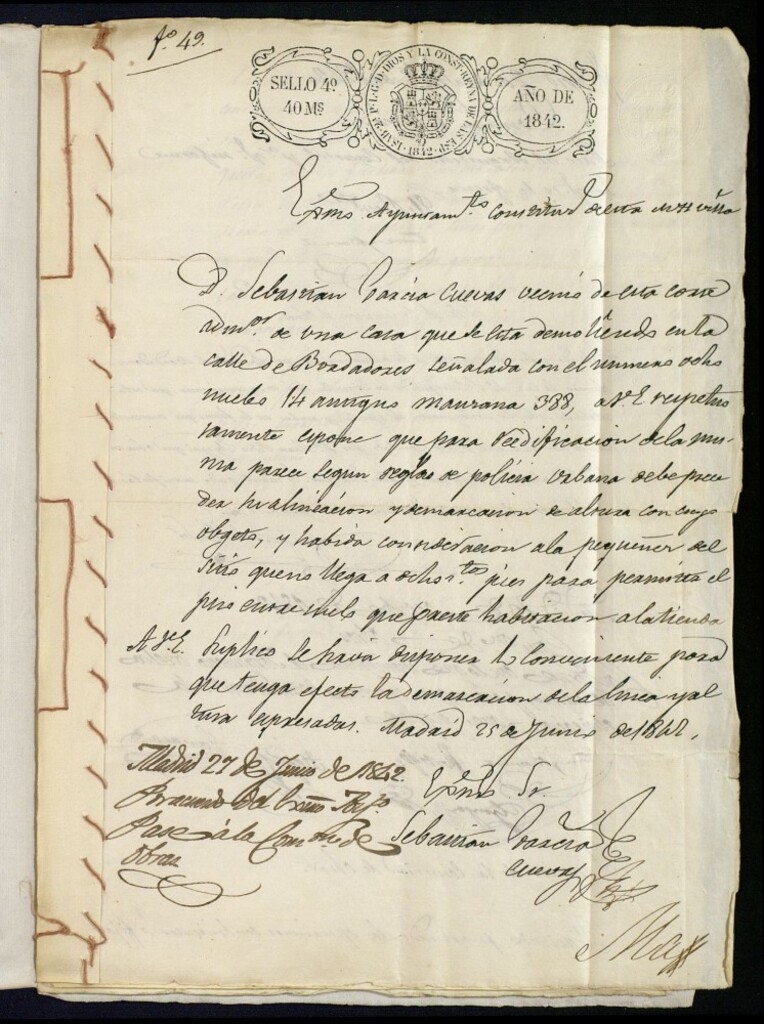 fo. 49.
SELLO 4º
40 Ms
ISAB. 2ª P. L. G. D. DIOS Y LA CONST. REYNA DE LAS ESP. 1842
AÑO DE
1842.
Exmo Ayuntamto constitul de esta M H villa
D. Sebastian Garcia Cuevas vecino de esta corte
admor de una casa que se esta demoliendo en la
calle de Bordadores señalada con el numero ocho
nuebo 14 antiguo manzana 388, a V.E. respetuo
samente espone que para reedificacion de la mis-
ma parece segun reglas de policia urbana debe prece
der su alineacion y demarcacion de altura con cuyo
obgeto, y habida consideracion a la pequeñez del
sitio que no llega a ochotos pies para permitir el
piso entre suelo que preste habitacion a la tienda
A V.E. Suplico se sirva disponer lo conveniente para
que tenga efecto la demarcacion de la linea y al
tura espresadas. Madrid 25 de Junio de 1842.
Exmo Sr.
Sebastian Garcia
Cuevas
Madrid 27 de Junio de 1842.
Por acuerdo del Exmo Ayto
Pase á la Comon de
Obras